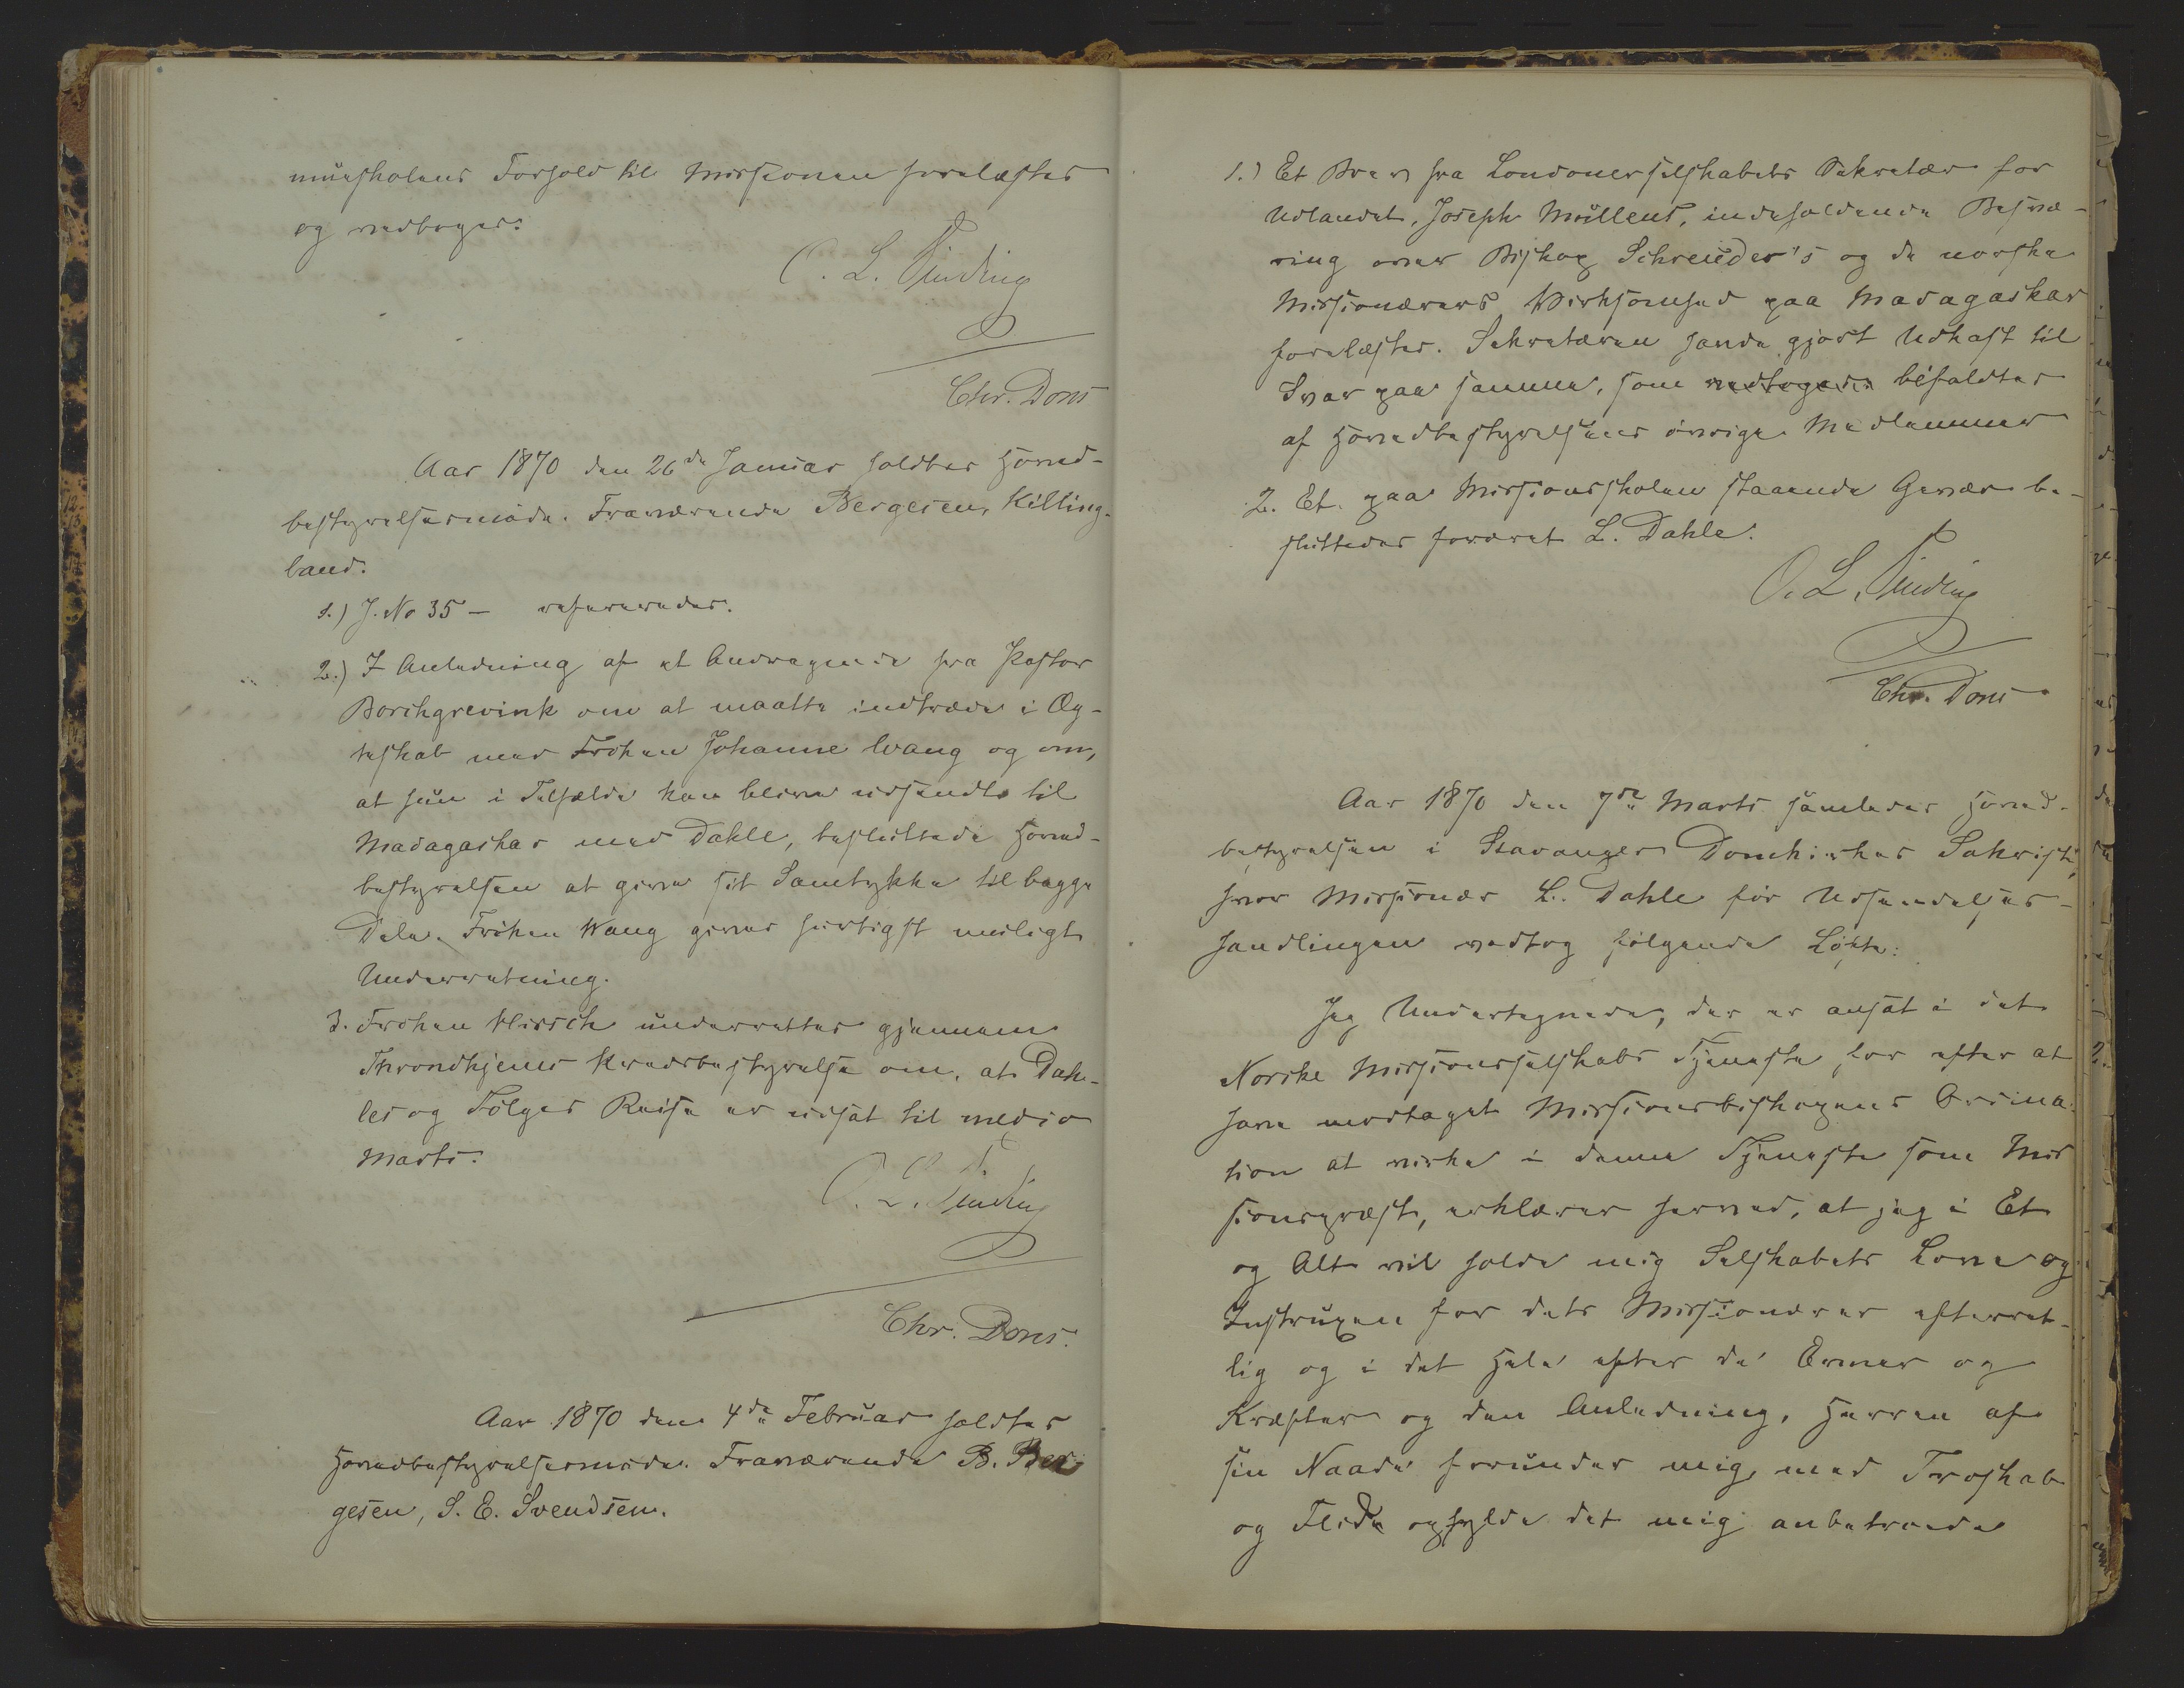 munskolens Forhold til Missionen forelæstes
og vedtoges.
O. L. Sinding
Chr. Dons
Aar 1870 den 26de Januar holdtes Hoved-
bestyrelsesmöde. Fraværende Bergesen, Killing-
land.
1.) J. No 35 – refereredes.
2.) I Anledning af et Andragende fra Pastor
Borchgrevink om at maatte indtræde i Æg-
teskab med Fröken Johanne Wang og om,
at hun i Tilfælde kan blive udsendt til
Madagaskar med Dahle, besluttede Hoved-
bestyrelsen at give sit Samtykke til begge
Dele. Fröken Wang gives hurtigst muligt
Underretning.
3. Fröken Hirsch underrettes gjennem
Throndhjems Kredsbestyrelse om, at Dah-
les og Fölges Reise er udsat til medio
Marts.
O. L. Sinding
Chr. Dons.
Aar 1870 den 4de Februar holdtes
Hovedbestyrelsesmöde. Fraværende B. Ber
gesen, S. E. Svendsen.
1.) Et Brev fra Londonerselskabets Sekretær for
Udlandet, Joseph Mullens, indeholdende Besvæ-
ring over Biskop Schreuder's og de norske
Missionærers Virksomhed paa Madagaskar
forelæstes. Sekretæren havde gjort Udkast til
Svar paa samme, som vedtoges bifaldtes
af Hovedbestyrelsens övrige Medlemmer
2. Et paa Missionsskolen staaende Gevær be-
sluttedes foræret L. Dahle.
O. L. Sinding
Chr. Dons
Aar 1870 den 7de Marts samledes Hoved-
bestyrelsen i Stavanger Domkirkes Sakristi,
hvor Missionær L. Dahle för Udsendelses-
handlingen vedtog fölgende Löfte:
Jeg Undertegnede, der er ansat i det
Norske Missionsselskabs Tjeneste for efter at
have modtaget Missionsbiskopens Ordina-
tion at virke i denne Tjeneste som Mis
sionsprest, erklærer herved, at jeg i Et
og Alt vil holde mig Selskabets Love og
Instruxen for dets Missionærer efterret-
lig og i det Hele efter de Evner og
Kræfter og den Anledning, Herren af
sin Naade forunder mig, med Troskab
og Flid opfylde det mig anbetroede